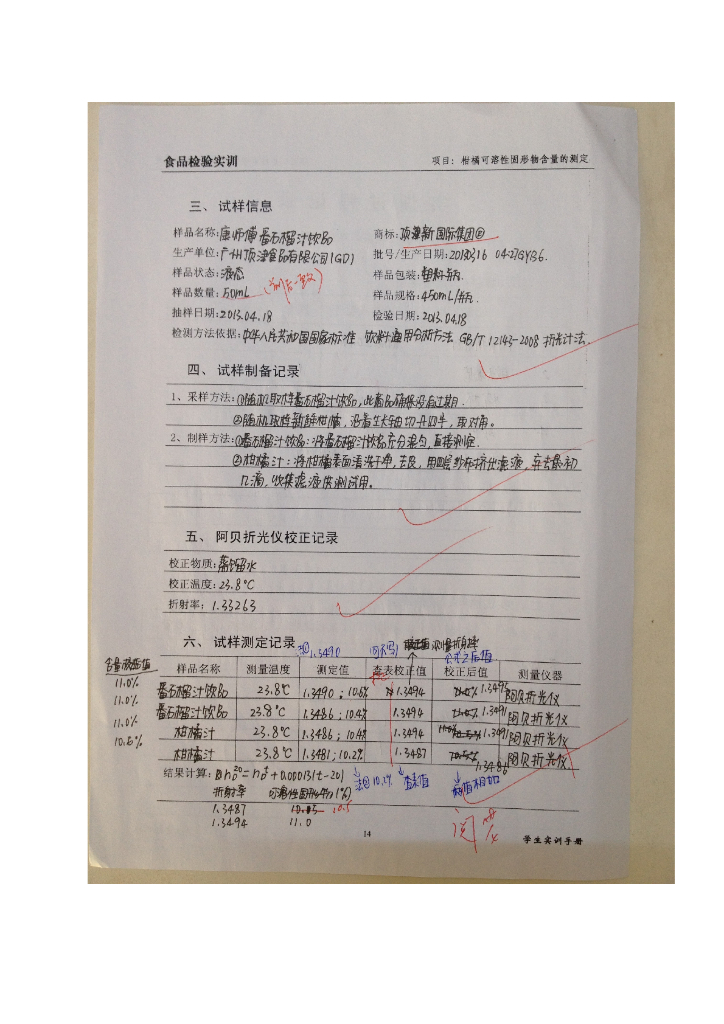 食品检验实训 项目：柑橘可溶性固形物含量的测定
三、试样信息
样品名称：康师傅番石榴汁饮品 商标：顶津新国际集团
生产单位：广州顶津食品有限公司(GD) 批号/生产日期：20130316
样品状态：液态 样品包装：塑料瓶
样品数量：50mL 样品规格：450mL/瓶.
抽样日期：2013.04.18 检验日期：2013.04.18
检测方法依据：中华人民共和国国家标准 饮料通用分析方法 GB/T 12143-2008 折光计法.
四、试样制备记录
1、采样方法：①随机取样番石榴汁饮品，此商品确保没有过期.
②随机取样新鲜柑橘，沿着生长轴切开四半，取对角。
2、制样方法：①番石榴汁饮品：将番石榴汁饮品充分混匀，直接测定.
②柑橘汁：将柑橘表面清洗干净，去皮，用四层纱布挤出滤液，弃去最初
几滴，收集滤液供测试用。
五、阿贝折光仪校正记录
校正物质：蒸馏水
校正温度：23.8℃
折射率：1.33263
六、试样测定记录 1.3490
公式之后值
样品名称 测量温度 测定值 查表校正值 校正后值 测量仪器
11.0% 番石榴汁饮品 23.8℃ 1.3490；10.6% 1.3494 阿贝折光仪
11.0% 番石榴汁饮品 23.8℃ 1.3486；10.4% 1.3494 阿贝折光仪
11.0% 柑橘汁 23.8℃ 1.3486；10.4% 1.3494 阿贝折光仪
10.5% 柑橘汁 23.8℃ 1.3481；10.2% 1.3487 1.3486 阿贝折光仪
结果计算：n_D^20=n_D^t+0.00013(t-20) 查表值
折射率 可溶性固形物(%)
1.3487 10.5
1.3494 11.0
阅
14 学生实训手册